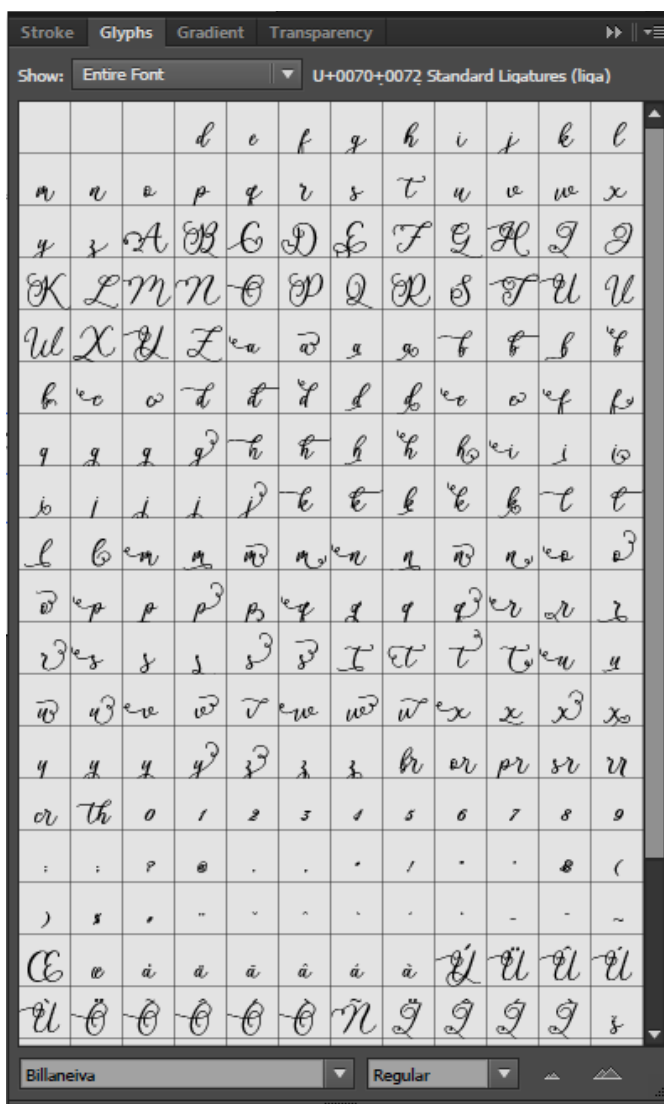 Stroke Glyphs Gradient Transparency
Show: Entire Font U+0070+0072 Standard Ligatures (liga)
d e f g h i j k l
m n o p q r s t u v w x
y z A B C D E F G H I J
K L M N O P Q R S T U V
W X Y Z a a a a b b b b
b c c d d d d d e e f f
g g g g h h h h h i i i
i j j j j k k k k k l l
l l m m m m n n n n o o
o p p p p q q q q r r r
r s s s s s t t t t u u
u u v v v w w w x x x x
y y y y z z z br or pr sr rr
cr th 0 1 2 3 4 5 6 7 8 9
: ; ? @ . , * ! " ' & (
) $ # ¨ ˇ ^ ` ´ - - ~
Œ œ ȧ ä ã â á à Ý Ü Û Ú
Ù Ö Õ Ô Ó Ò Ñ Ï Î Í Ì ž
Billaneiva Regular